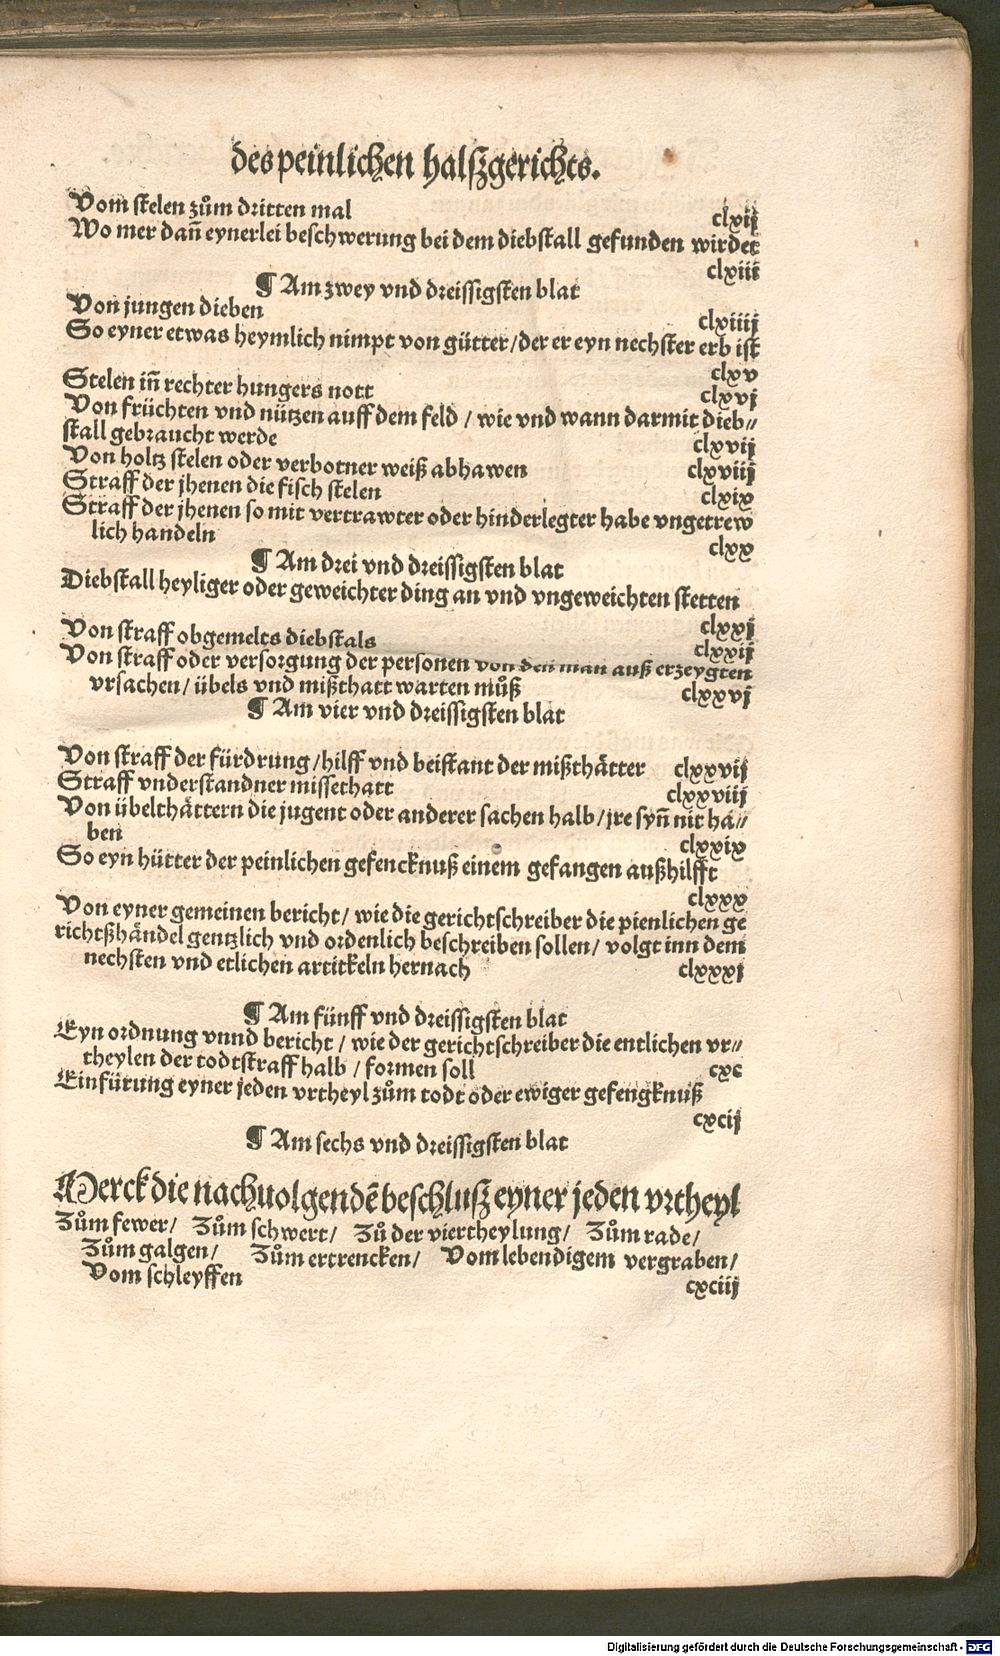 des peinlichen halſzgerichts.
Vom ſtelen zům dritten mal clxij
Wo mer dañ eynerlei beſchwerung bei dem diebſtall gefunden wirdet
clxiii
¶ Am zwey vnd dreiſſigſten blat
Von jungen dieben clxiiij
So eyner etwas heymlich nimpt von gütter/der er eyn nechſter erb iſt
clxv
Stelen iñ rechter hungers nott clxvj
Von früchten vnd nützen auff dem feld / wie vnd wann darmit dieb⸗
ſtall gebraucht werde clxvij
Von holtz ſtelen oder verbotner weiß abhawen clxviij
Straff der jhenen die fiſch ſtelen clxix
Straff der jhenen ſo mit vertrawter oder hinderlegter habe vngetrew
lich handeln clxx
¶ Am drei vnd dreiſſigſten blat
Diebſtall heyliger oder geweichter ding an vnd vngeweichten ſtetten
clxxj
Von ſtraff obgemelts diebſtals clxxij
Von ſtraff oder verſorgung der perſonen von den man auß erzeygten
vrſachen/ übels vnd mißthatt warten můß clxxvj
¶ Am vier vnd dreiſſigſten blat
Von ſtraff der fürdrung/hilff vnd beiſtant der mißthätter clxxvij
Straff vnderſtandner miſſethatt clxxviij
Von übelthättern die jugent oder anderer ſachen halb/jre ſyñ nit hä⸗
ben clxxix
So eyn hütter der peinlichen gefencknuß einem gefangen außhilfft
clxxx
Von eyner gemeinen bericht/ wie die gerichtſchreiber die pienlichen ge
richtßhändel gentzlich vnd ordenlich beſchreiben ſollen/ volgt inn dem
nechſten vnd etlichen artickeln hernach clxxxj
¶ Am fünff vnd dreiſſigſten blat
Eyn ordnung vnnd bericht / wie der gerichtſchreiber die entlichen vr⸗
theylen der todtſtraff halb / formen ſoll cxc
Einfürung eyner jeden vrtheyl zům todt oder ewiger gefengknuß
cxcij
¶ Am ſechs vnd dreiſſigſten blat
Merck die nachuolgendẽ beſchluſz eyner jeden vrtheyl
Zům fewer/ Zům ſchwert/ Zů der viertheylung/ Zům rade/
Zům galgen/ Zům ertrencken/ Vom lebendigem vergraben/
Vom ſchleyffen cxciij
Digitalisierung gefördert durch die Deutsche Forschungsgemeinschaft - DFG